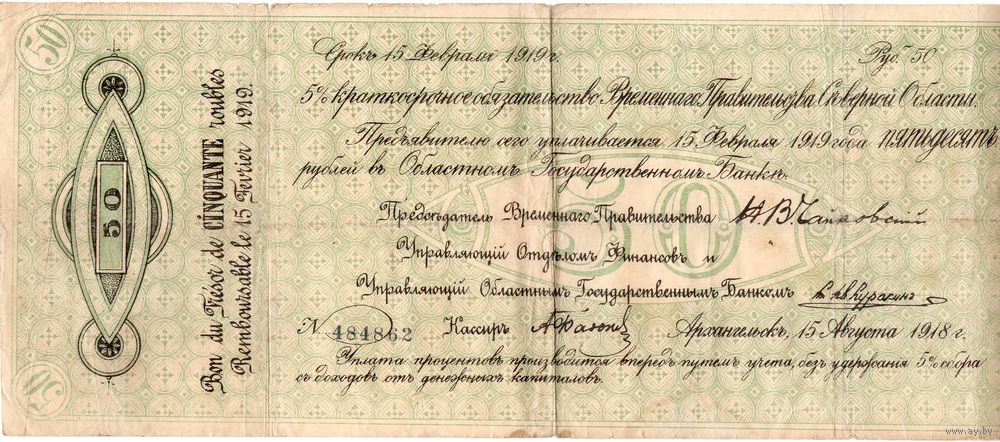 50
Срокъ 15 Февраля 1919 г.
Руб. 50
5% краткосрочное обязательство Временнаго Правительства Сѣверной Области.
Предъявителю сего уплачивается 15 Февраля 1919 года пятьдесятъ
рублей въ Областномъ Государственномъ Банкѣ.
Предсѣдатель Временнаго Правительства Н В Чайковскій
Управляющій Отдѣломъ Финансовъ и
Управляющій Областнымъ Государственнымъ Банкомъ Куракинъ
№ 484862 Кассиръ
Архангельскъ, 15 Августа 1918 г.
Уплата процентовъ производится впередъ путемъ учета, безъ удержанія 5% сбора
съ доходовъ отъ денежныхъ капиталовъ.
Bon du Trésor de CINQUANTE roubles
Remboursable le 15 Fevrier 1919.
50
50
50
www.ay.by